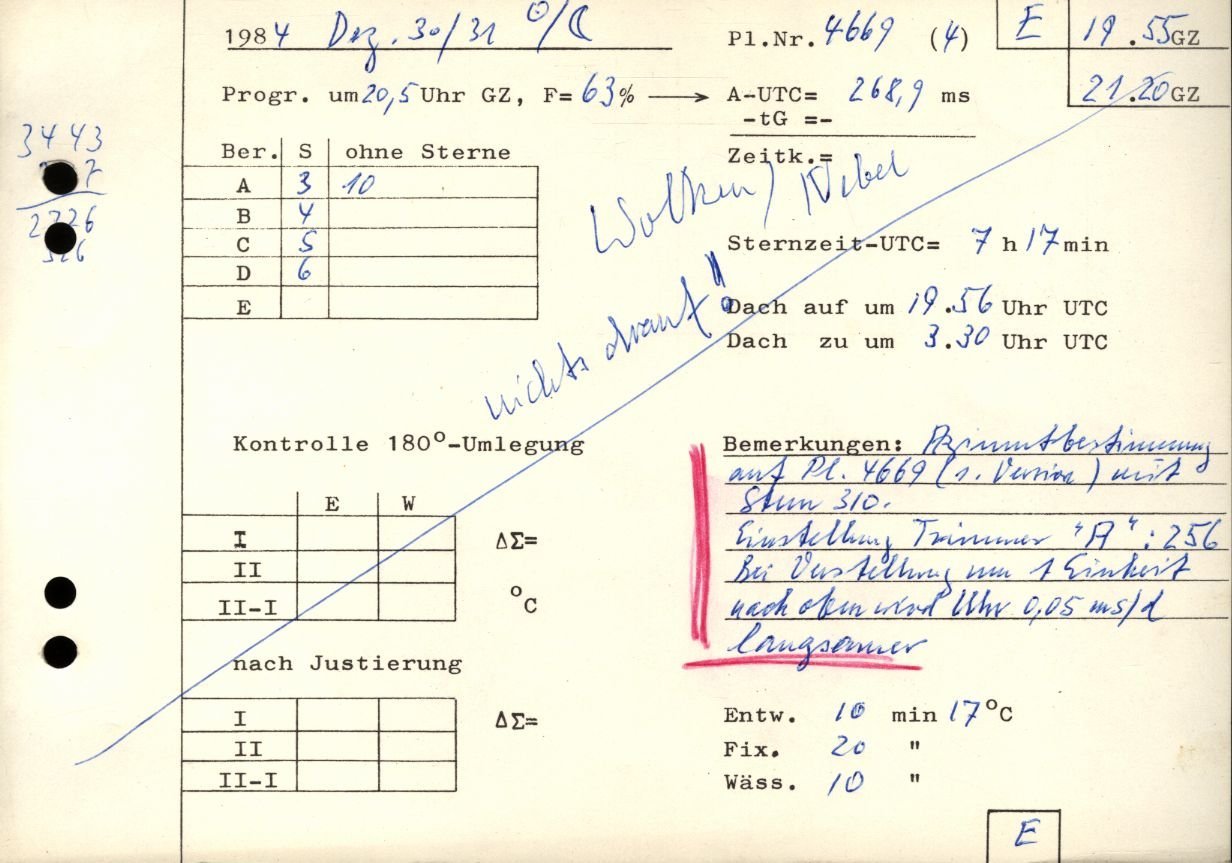 1984 Dez. 30/31 ☉/☾
Pl.Nr. 4669 (4)
E 19.55 GZ
21.20 GZ
Progr. um 20,5 Uhr GZ, F= 63% → A-UTC= 268,9 ms
-tG =-
Zeitk.=
3443
7
Ber. S ohne Sterne
A 3 10
B 4
C 5
D 6
E
Wolken / Nebel
nichts drauf!
Sternzeit-UTC= 7 h 17 min
Dach auf um 19.56 Uhr UTC
Dach zu um 3.30 Uhr UTC
Kontrolle 180°-Umlegung
E W
I ΔΣ=
II
II-I °C
nach Justierung
I ΔΣ=
II
II-I
Bemerkungen: Azimutbestimmung
auf Pl. 4669 (1. Version) mit
Stern 310.
Einstellung Trimmer "A": 256
Bei Verstellung um 1 Einheit
nach oben wird Uhr 0,05 ms/d
langsamer
Entw. 10 min 17°C
Fix. 20 "
Wäss. 10 "
E